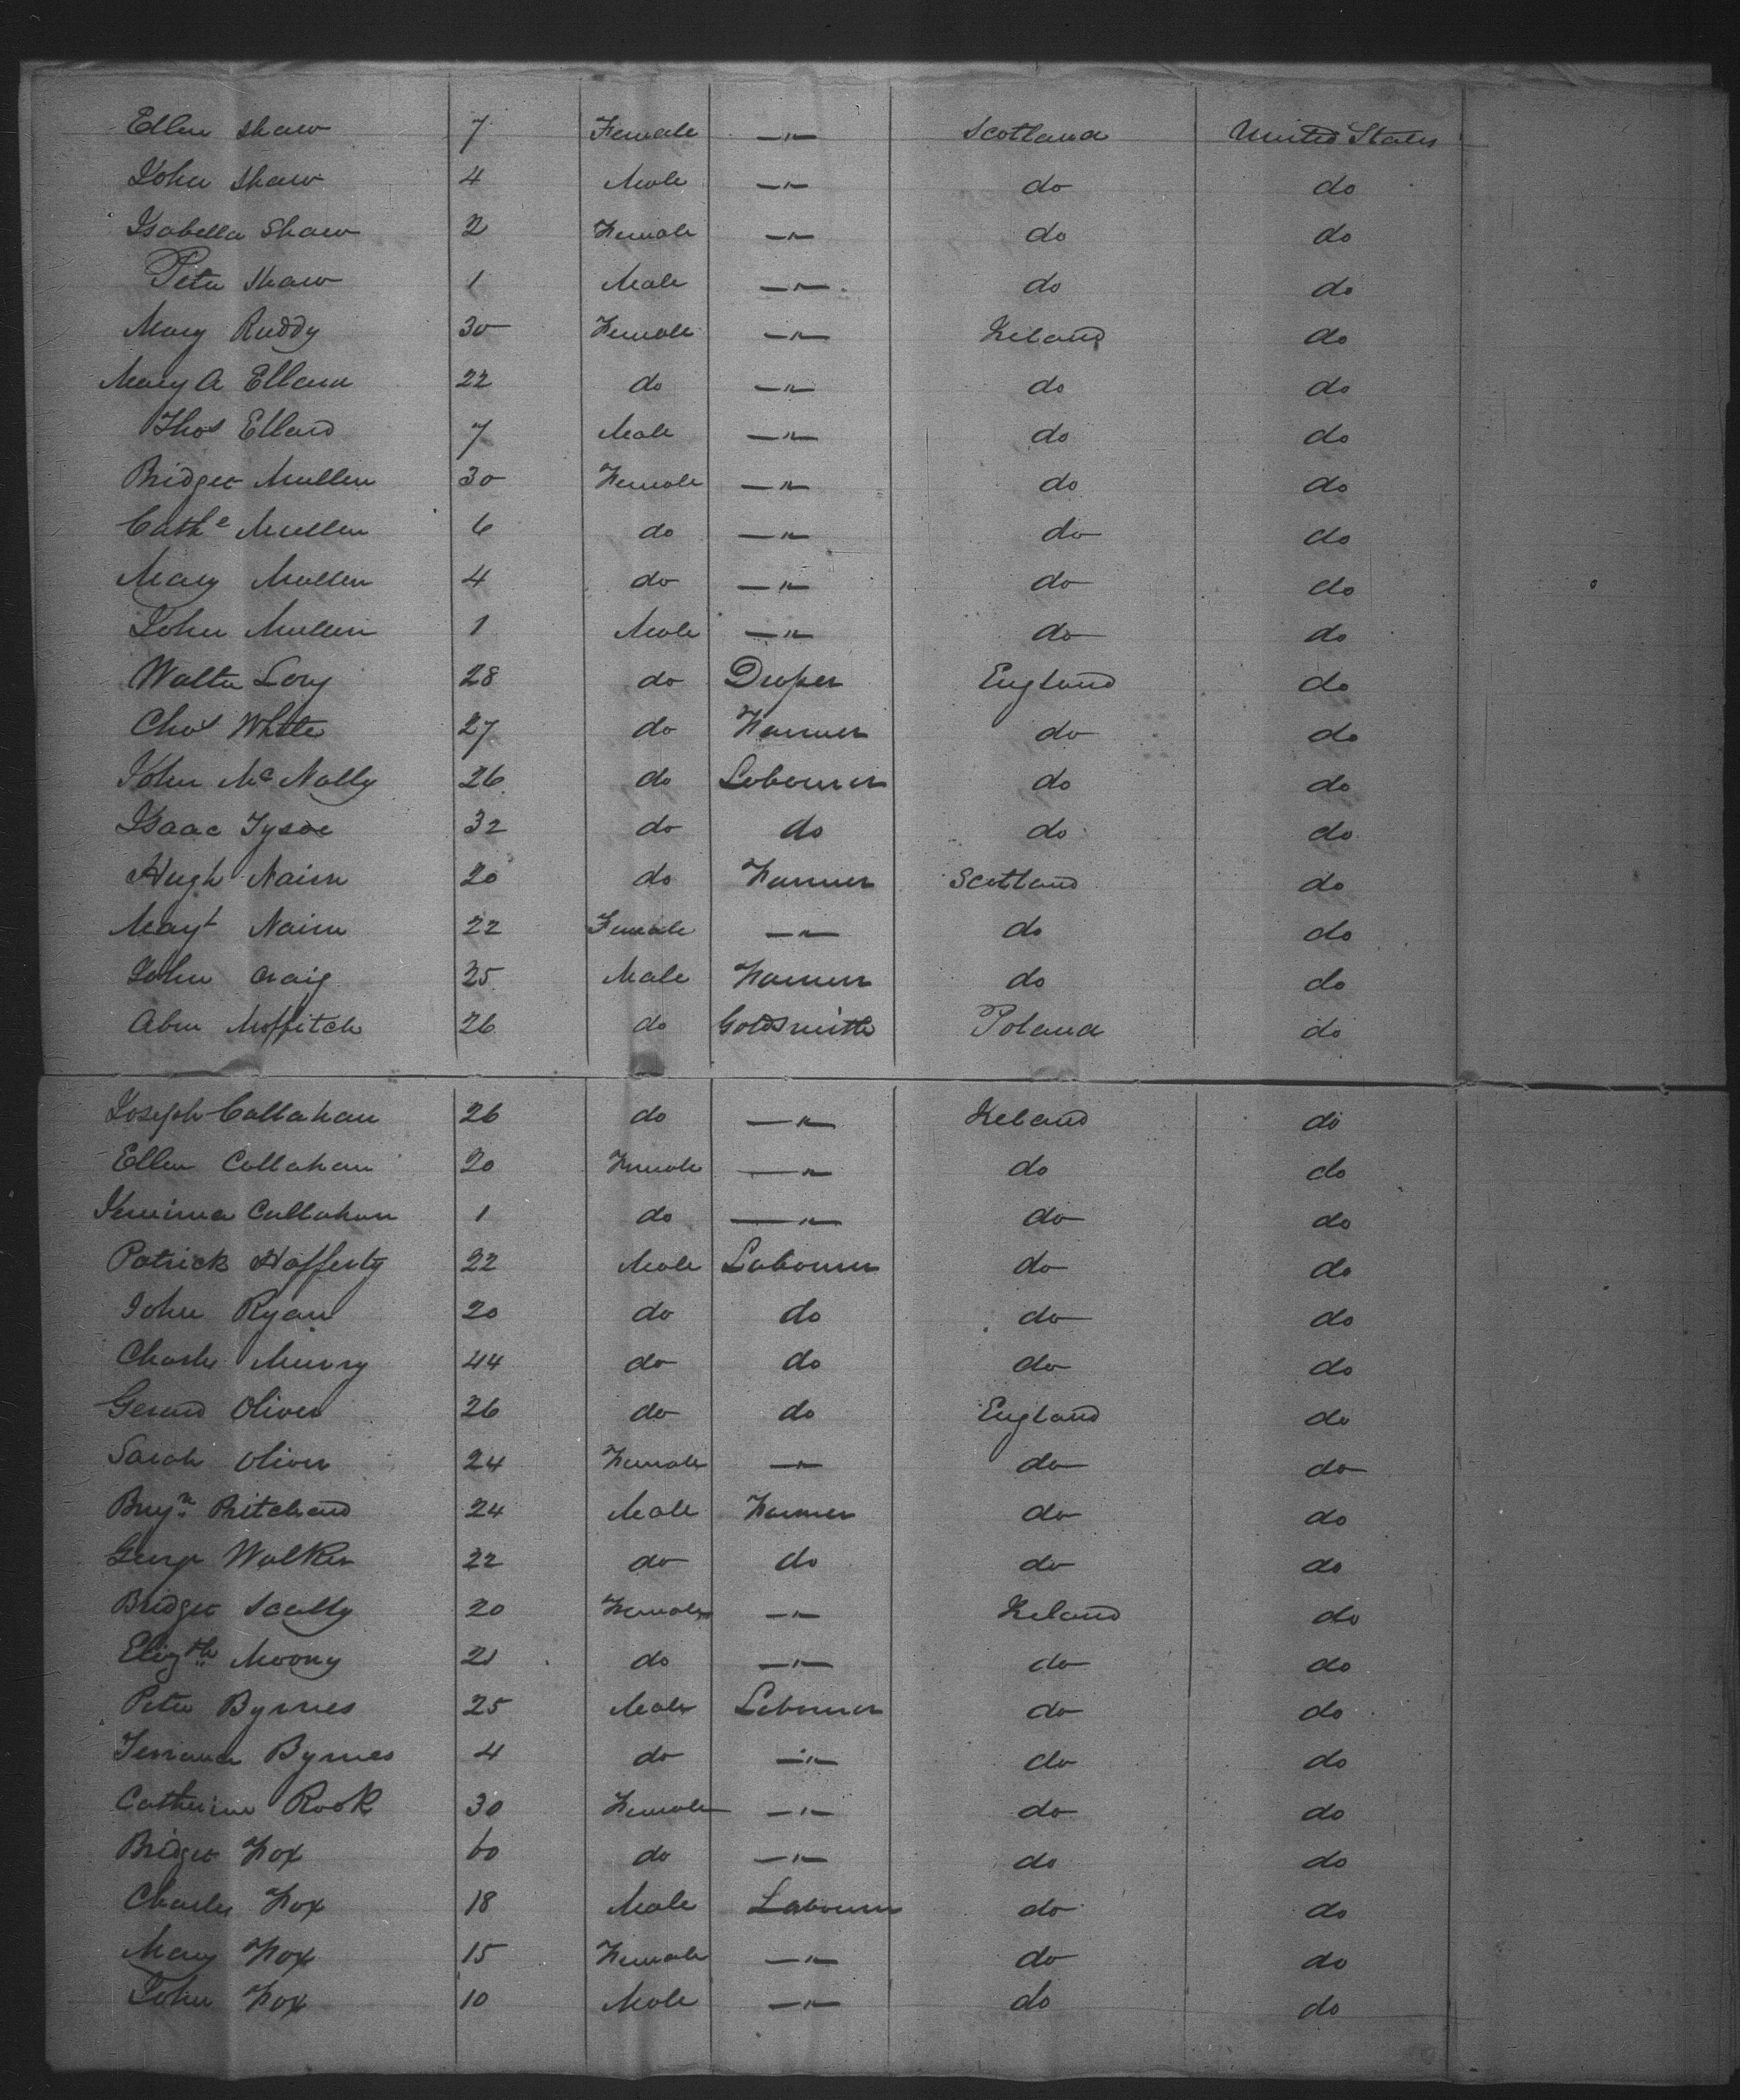 Ellen Shaw 7 Female —"— Scotland United States
John Shaw 4 Male —"— do do
Isabella Shaw 2 Female —"— do do
Peter Shaw 1 Male —"— do do
Mary Ruddy 30 Female —"— Ireland do
Mary A Ellard 22 do —"— do do
Thos Ellard 7 Male —"— do do
Bridget Mullen 30 Female —"— do do
Cathe Mullen 6 do —"— do do
Mary Mullen 4 do —"— do do
John Mullen 1 Male —"— do do
Walter Lory 28 do Draper England do
Chas White 27 do Farmer do do
John Mc Nally 26 do Labourer do do
Isaac Tysoe 32 do do do do
Hugh Nairn 20 do Farmer Scotland do
Mayt Nairn 22 Female —"— do do
John Craig 35 Male Farmer do do
Abm Moffitch 26 do Goldsmith Poland do
Joseph Callahan 26 do —"— Ireland do
Ellen Callahan 20 Female —"— do do
Jemima Callahan 1 do —"— do do
Patrick Hafferty 22 Male Labourer do do
John Ryan 20 do do do do
Charles Murry 44 do do do do
Gerard Oliver 26 do do England do
Sarah Oliver 24 Female —"— do do
Benjn Pritchard 24 Male Farmer do do
George Walker 22 do do do do
Bridget Scally 20 Female —"— Ireland do
Elizth Moony 21 do —"— do do
Peter Byrnes 25 Male Labourer do do
Byrnes 4 do —"— do do
Catherine Rook 30 Female —"— do do
Bridget Fox 60 do —"— do do
Charles Fox 18 Male Labourer do do
Mary Fox 15 Female —"— do do
John Fox 10 Male —"— do do